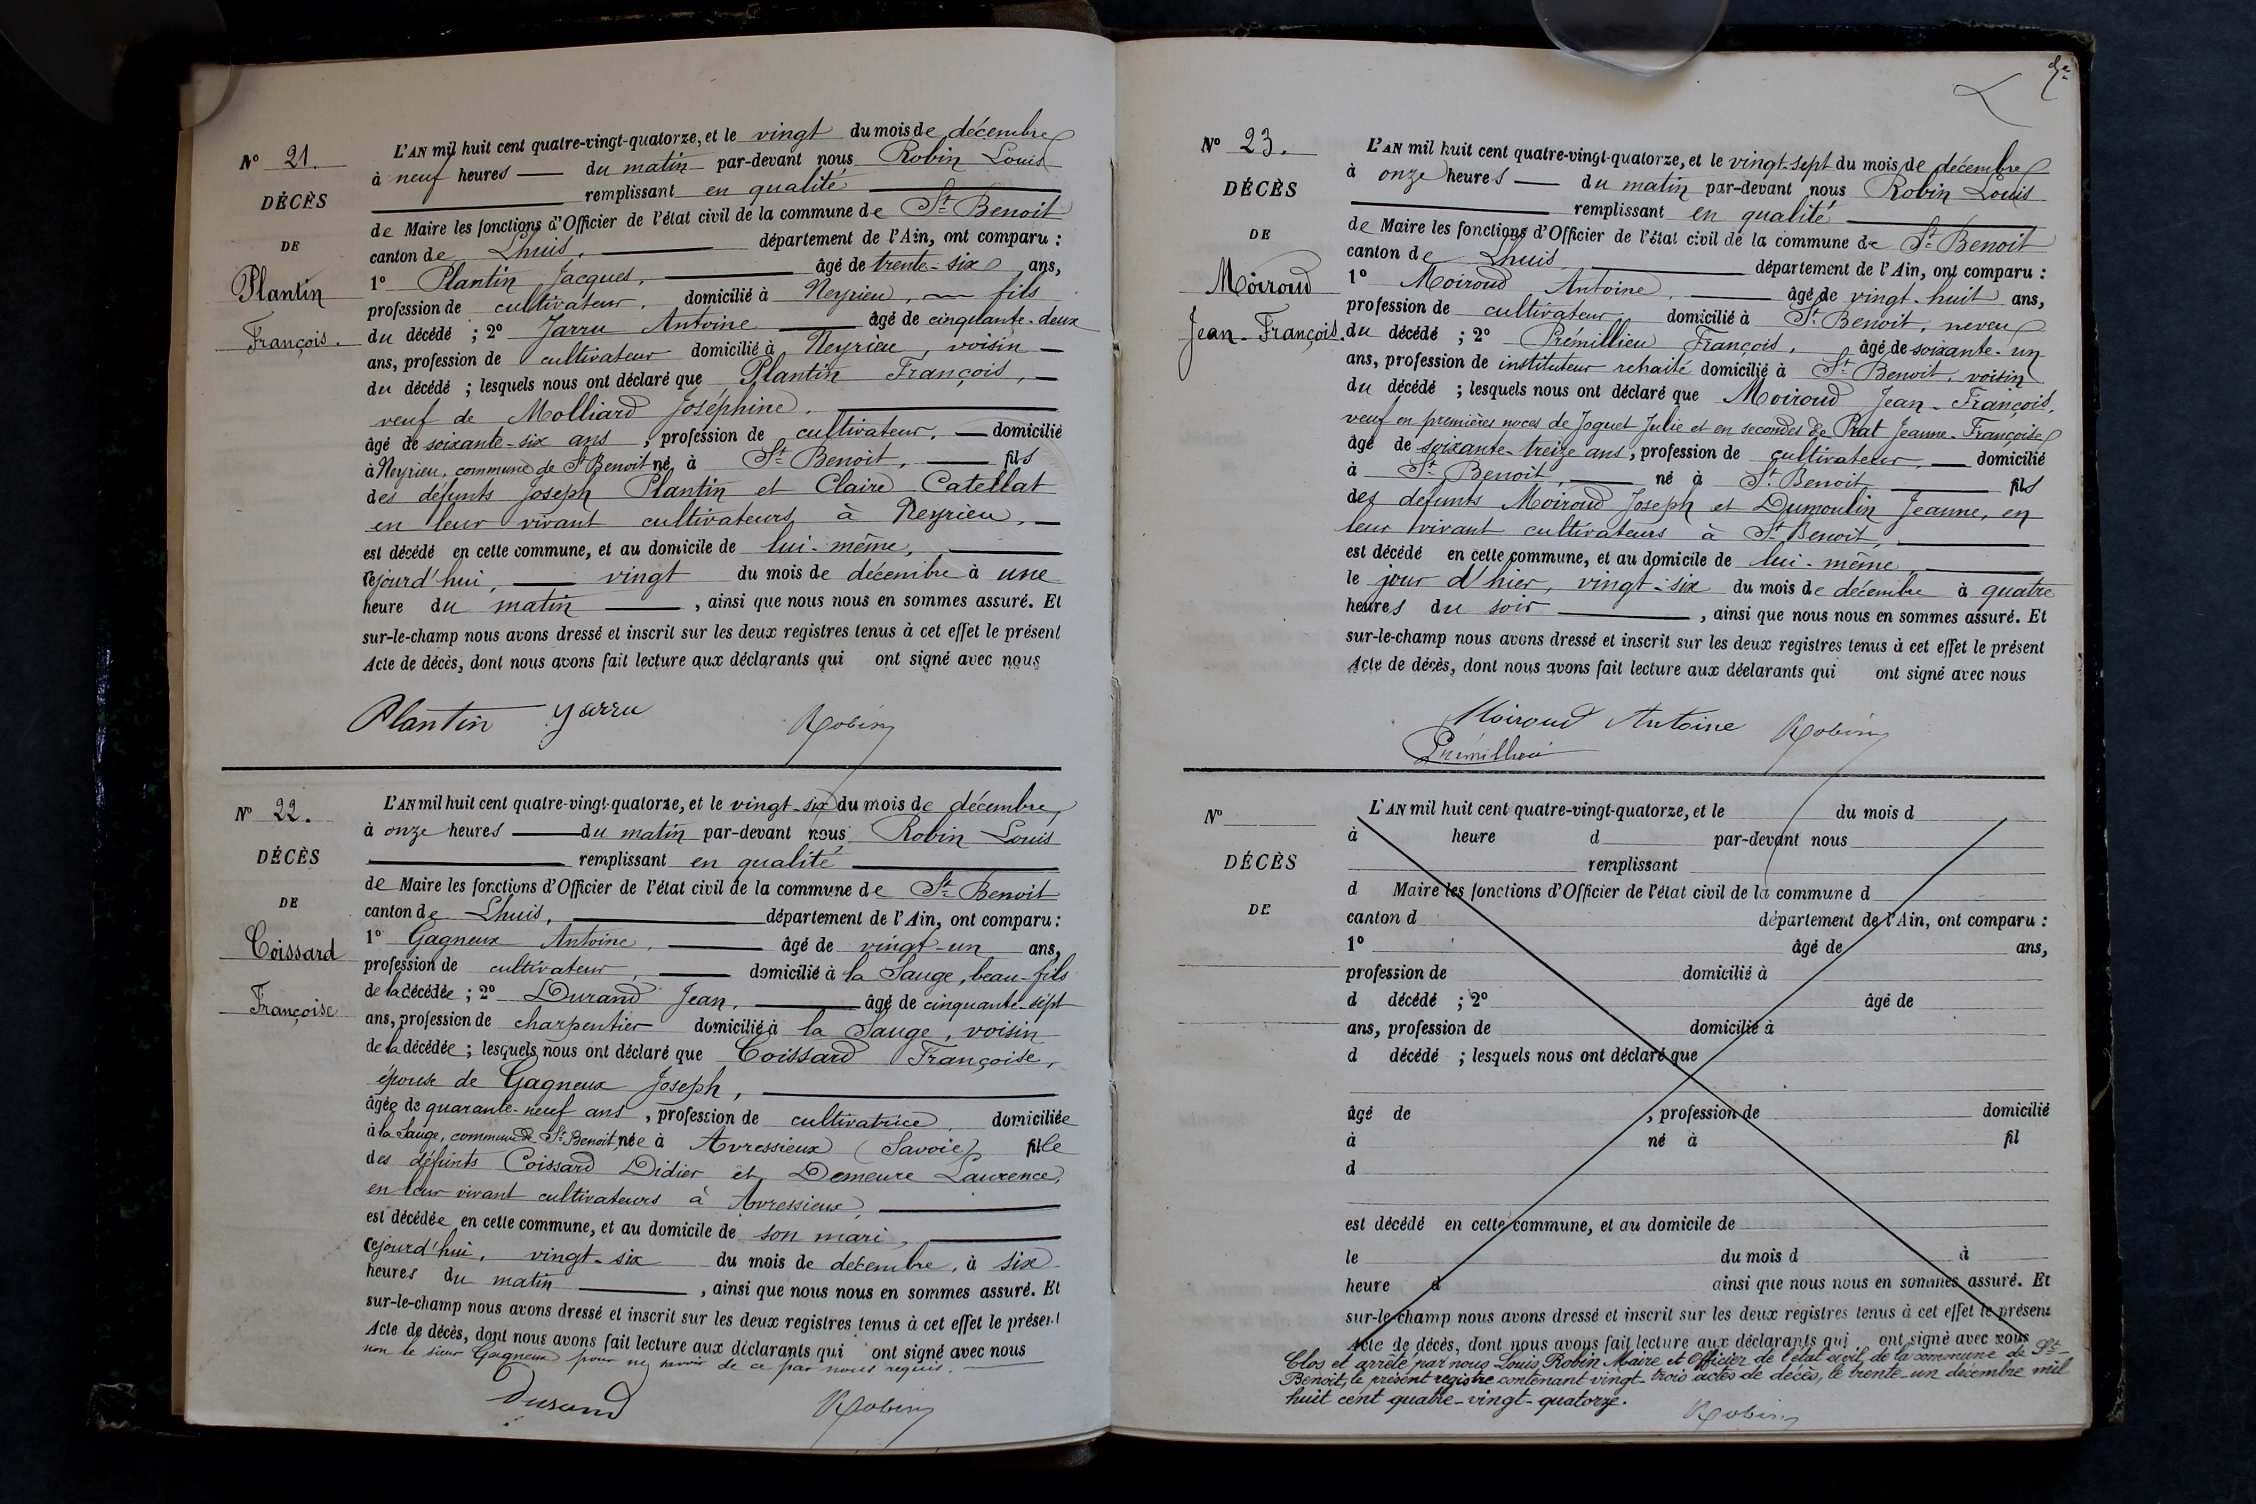 N° 21.
DÉCÈS
DE
Plantin
François.
L'AN mil huit cent quatre-vingt-quatorze, et le vingt du mois de décembre
à neuf heures du matin par-devant nous Robin Louis
remplissant en qualité
de Maire les fonctions d'Officier de l'état civil de la commune de St Benoit
canton de Lhuis, département de l'Ain, ont comparu :
1° Plantin Jacques, âgé de trente-six ans,
profession de cultivateur, domicilié à Neyrieu, fils
du décédé ; 2° Jarru Antoine âgé de cinquante-deux
ans, profession de cultivateur domicilié à Neyrieu, voisin
du décédé ; lesquels nous ont déclaré que Plantin François,
veuf de Molliard Joséphine,
âgé de soixante-six ans, profession de cultivateur, domicilié
à Neyrieu, commune de St Benoit né à St Benoit, fils
des défunts Joseph Plantin et Claire Catellat
en leur vivant cultivateurs à Neyrieu,
est décédé en cette commune, et au domicile de lui-même,
cejourd'hui, vingt du mois de décembre à une
heure du matin, ainsi que nous nous en sommes assuré. Et
sur-le-champ nous avons dressé et inscrit sur les deux registres tenus à cet effet le présent
Acte de décès, dont nous avons fait lecture aux déclarants qui ont signé avec nous
Plantin Jarru Robin
N° 22.
DÉCÈS
DE
Coissard
Françoise
L'AN mil huit cent quatre-vingt-quatorze, et le vingt-six du mois de décembre
à onze heures du matin par-devant nous Robin Louis
remplissant en qualité
de Maire les fonctions d'Officier de l'état civil de la commune de St Benoit
canton de Lhuis, département de l'Ain, ont comparu :
1° Gagneux Antoine, âgé de vingt-un ans,
profession de cultivateur, domicilié à la Sauge, beau-fils
de la décédée ; 2° Durand Jean, âgé de cinquante-sept
ans, profession de charpentier domicilié à la Sauge, voisin
de la décédée ; lesquels nous ont déclaré que Coissard Françoise,
épouse de Gagneux Joseph,
âgée de quarante-neuf ans, profession de cultivatrice, domiciliée
à la Sauge, commune de St Benoit, née à Avressieux (Savoie), fille
des défunts Coissard Didier et Demeure Laurence,
en leur vivant cultivateurs à Avressieux,
est décédée en cette commune, et au domicile de son mari,
cejourd'hui, vingt-six du mois de décembre, à six
heures du matin, ainsi que nous nous en sommes assuré. Et
sur-le-champ nous avons dressé et inscrit sur les deux registres tenus à cet effet le présent
Acte de décès, dont nous avons fait lecture aux déclarants qui ont signé avec nous
non le sieur Gagneux pour ne savoir de ce par nous requis.
Durand Robin
N° 23.
DÉCÈS
DE
Moiroud
Jean-François.
L'AN mil huit cent quatre-vingt-quatorze, et le vingt-sept du mois de décembre
à onze heures du matin par-devant nous Robin Louis
remplissant en qualité
de Maire les fonctions d'Officier de l'état civil de la commune de St Benoit
canton de Lhuis département de l'Ain, ont comparu :
1° Moiroud Antoine, âgé de vingt-huit ans,
profession de cultivateur, domicilié à St Benoit, neveu
du décédé ; 2° Prémillieu François, âgé de soixante-un
ans, profession de instituteur retraité domicilié à St Benoit, voisin
du décédé ; lesquels nous ont déclaré que Moiroud Jean-François,
veuf en premières noces de Joguet Julie et en secondes de Prat Jeanne-Françoise
âgé de soixante-treize ans, profession de cultivateur, domicilié
à St Benoit, né à St Benoit fils
des défunts Moiroud Joseph et Dumoulin Jeanne, en
leur vivant cultivateurs à St Benoit,
est décédé en cette commune, et au domicile de lui-même,
le jour d'hier, vingt-six du mois de décembre à quatre
heures du soir, ainsi que nous nous en sommes assuré. Et
sur-le-champ nous avons dressé et inscrit sur les deux registres tenus à cet effet le présent
Acte de décès, dont nous avons fait lecture aux déclarants qui ont signé avec nous
Moiroud Antoine Robin
Prémillieu
N°
DÉCÈS
DE
L'AN mil huit cent quatre-vingt-quatorze, et le du mois d
à heure d par-devant nous
remplissant
d Maire les fonctions d'Officier de l'état civil de la commune d
canton d département de l'Ain, ont comparu :
1° âgé de ans,
profession de domicilié à
d décédé ; 2° âgé de
ans, profession de domicilié à
d décédé ; lesquels nous ont déclaré que
âgé de , profession de domicilié
à né à fil
d
est décédé en cette commune, et au domicile de
le du mois d à
heure d ainsi que nous nous en sommes assuré. Et
sur-le-champ nous avons dressé et inscrit sur les deux registres tenus à cet effet le présent
Acte de décès, dont nous avons fait lecture aux déclarants qui ont signé avec nous
Clos et arrêté par nous Louis Robin Maire et Officier de l'état civil de la commune de St-
Benoit, le présent registre contenant vingt-trois actes de décès, le trente-un décembre mil
huit cent quatre-vingt-quatorze.
Robin